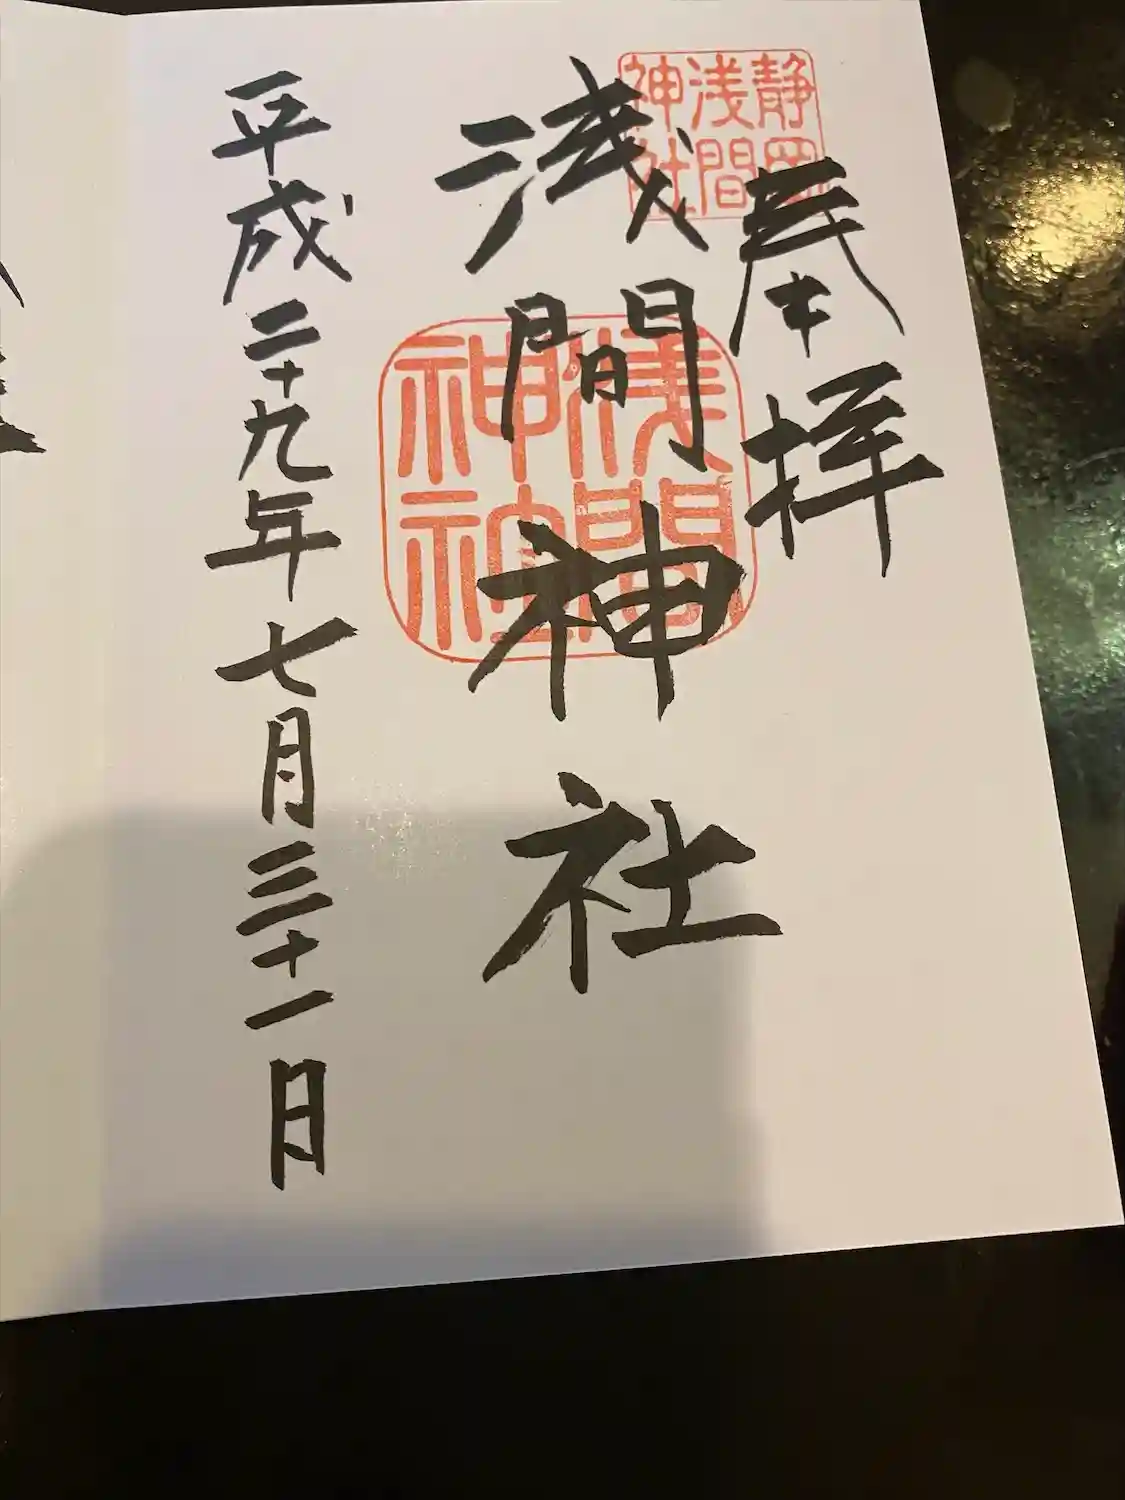 奉拝
静岡
浅間
神社
浅間神社
浅間
神社
平成二十九年七月三十一日